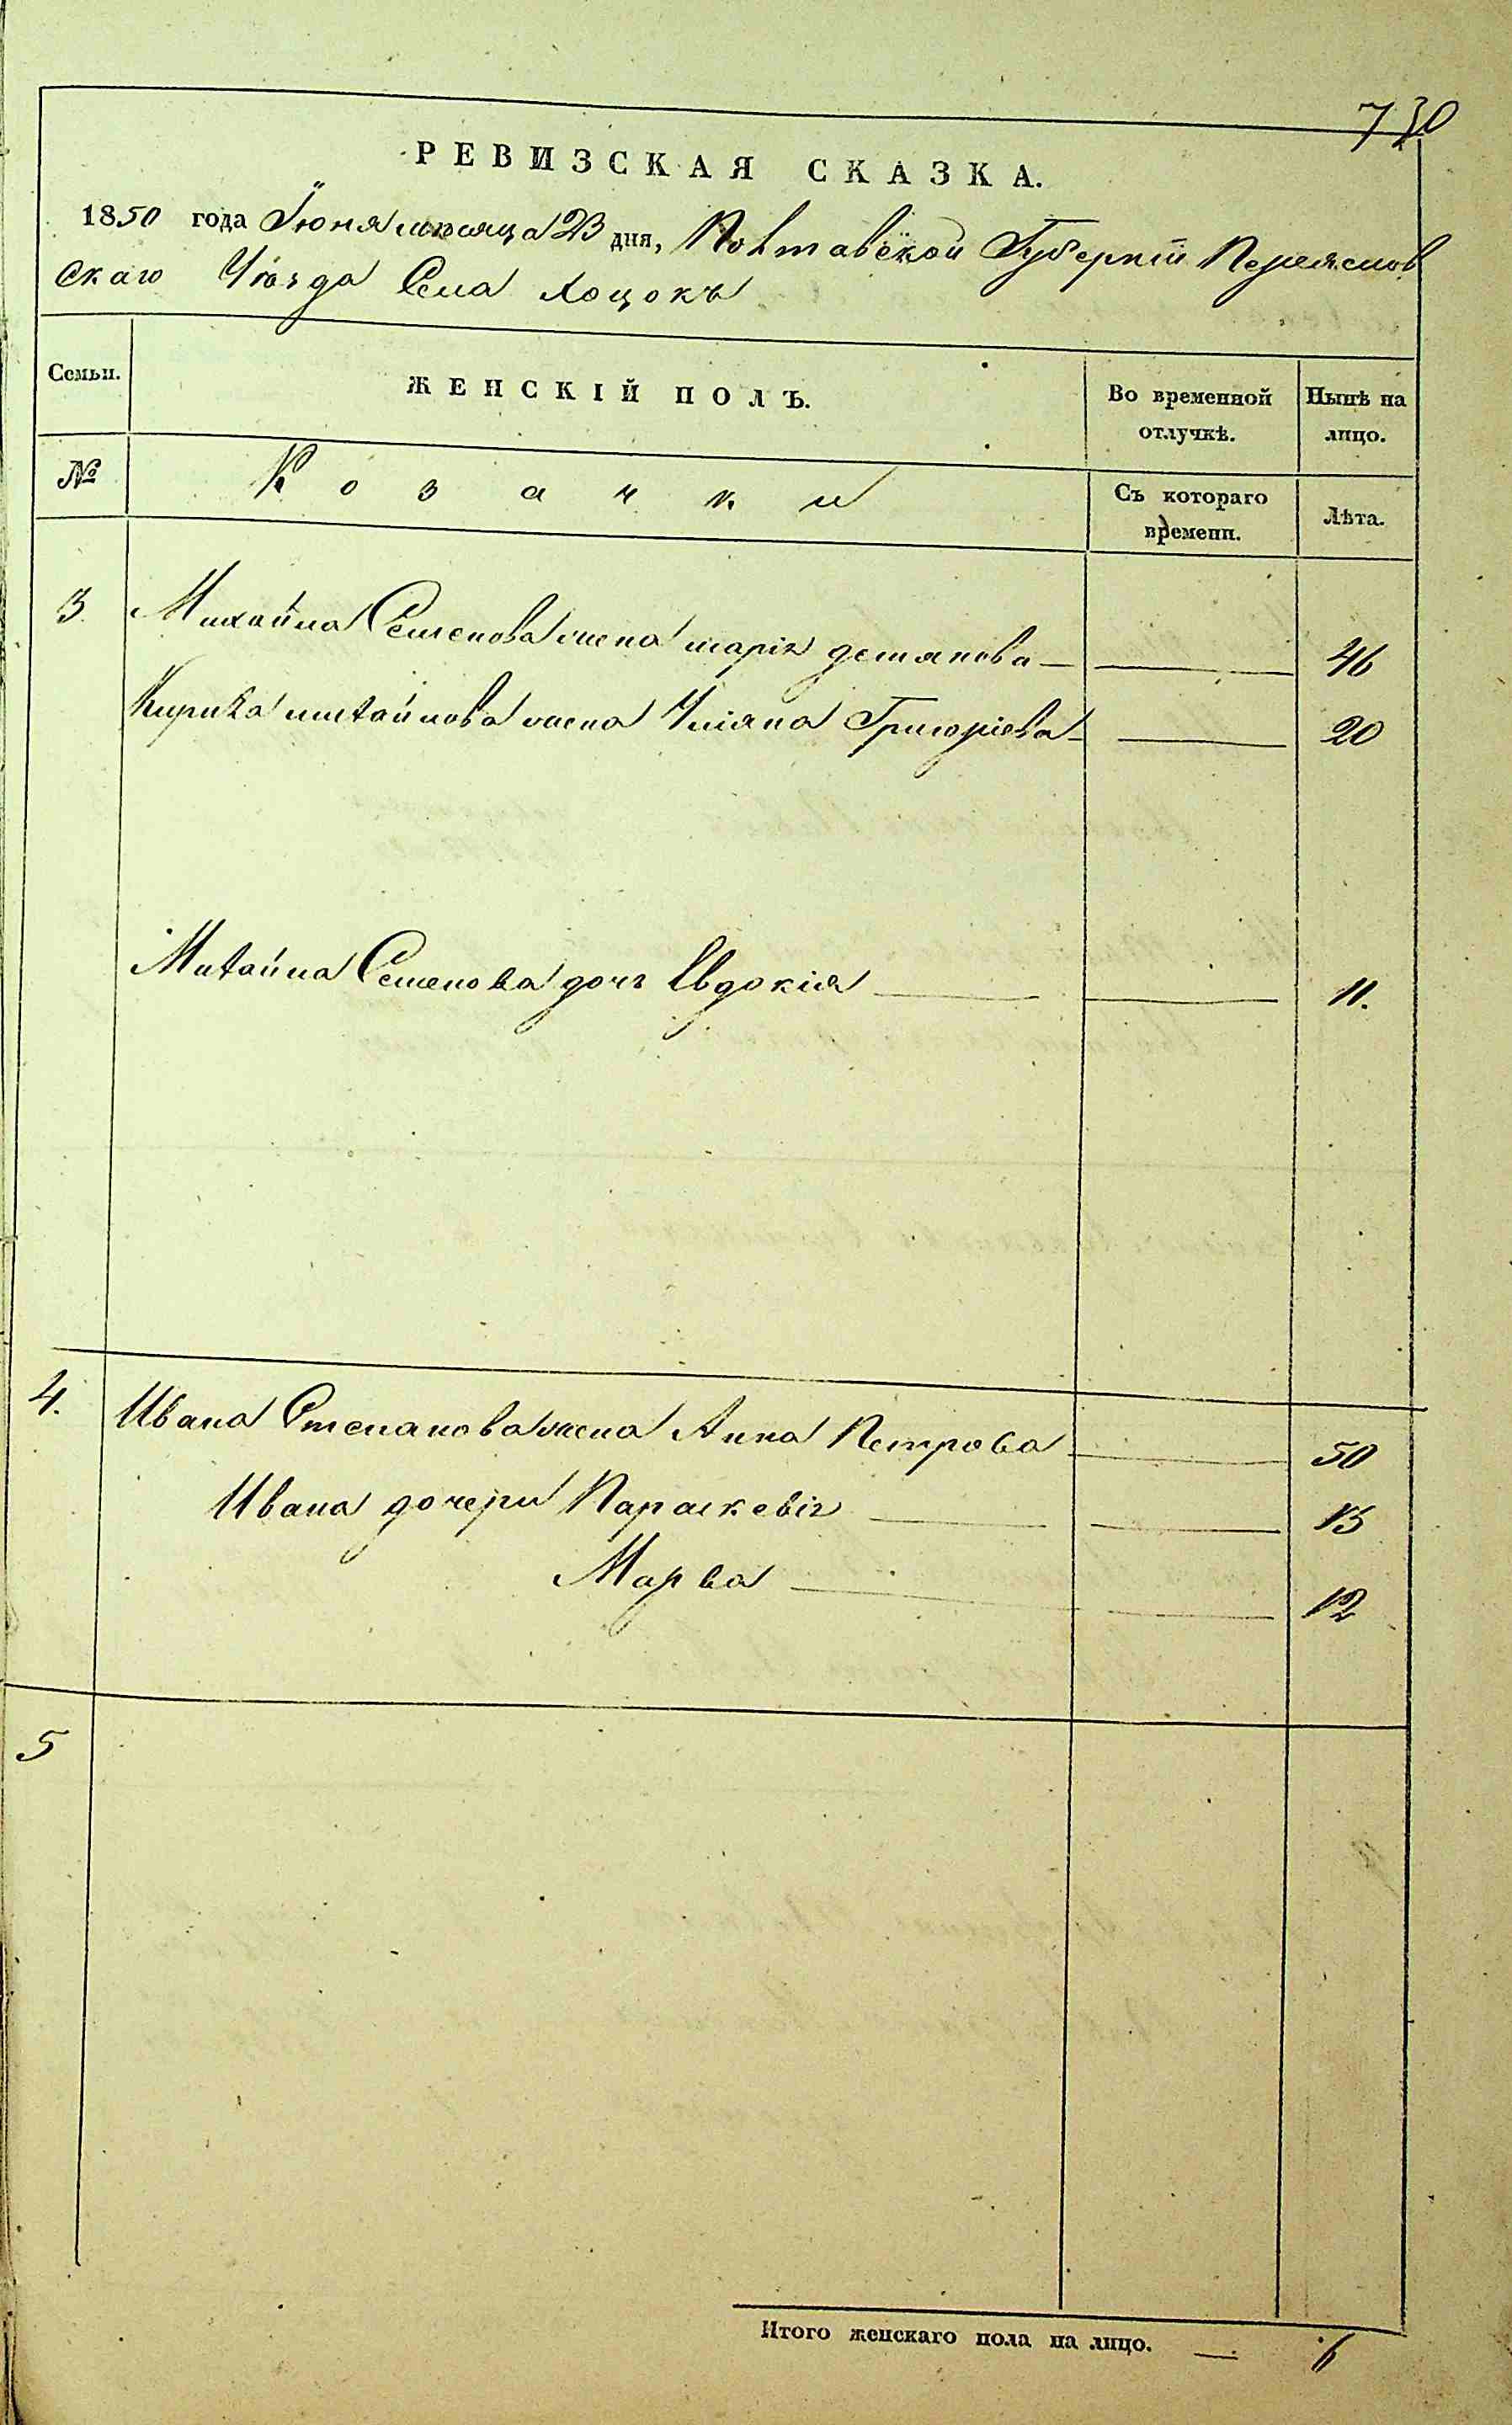 730
РЕВИЗСКАЯ СКАЗКА.
1850 года Іюня мѣсяца 23 дня, Полтавской Губерніи Переяслов
скаго Уѣзда Села Хоцокъ
Семьи.
ЖЕНСКІЙ ПОЛЪ.
Во временной отлучкѣ.
Нынѣ на лицо.
№
Козачки
Съ котораго времени.
Лѣта.
3 Михайла Семенова жена Марія Демянова — — 46
Кирила Михайлова жена Уліяна Григоріева — — 20
Михайла Семенова дочь Евдокія — — 11.
4. Ивана Степанова жена Анна Петрова — 50
Ивана дочери Параскевія — — 15
Марва — — 12
5
Итого женскаго пола на лицо. — 6